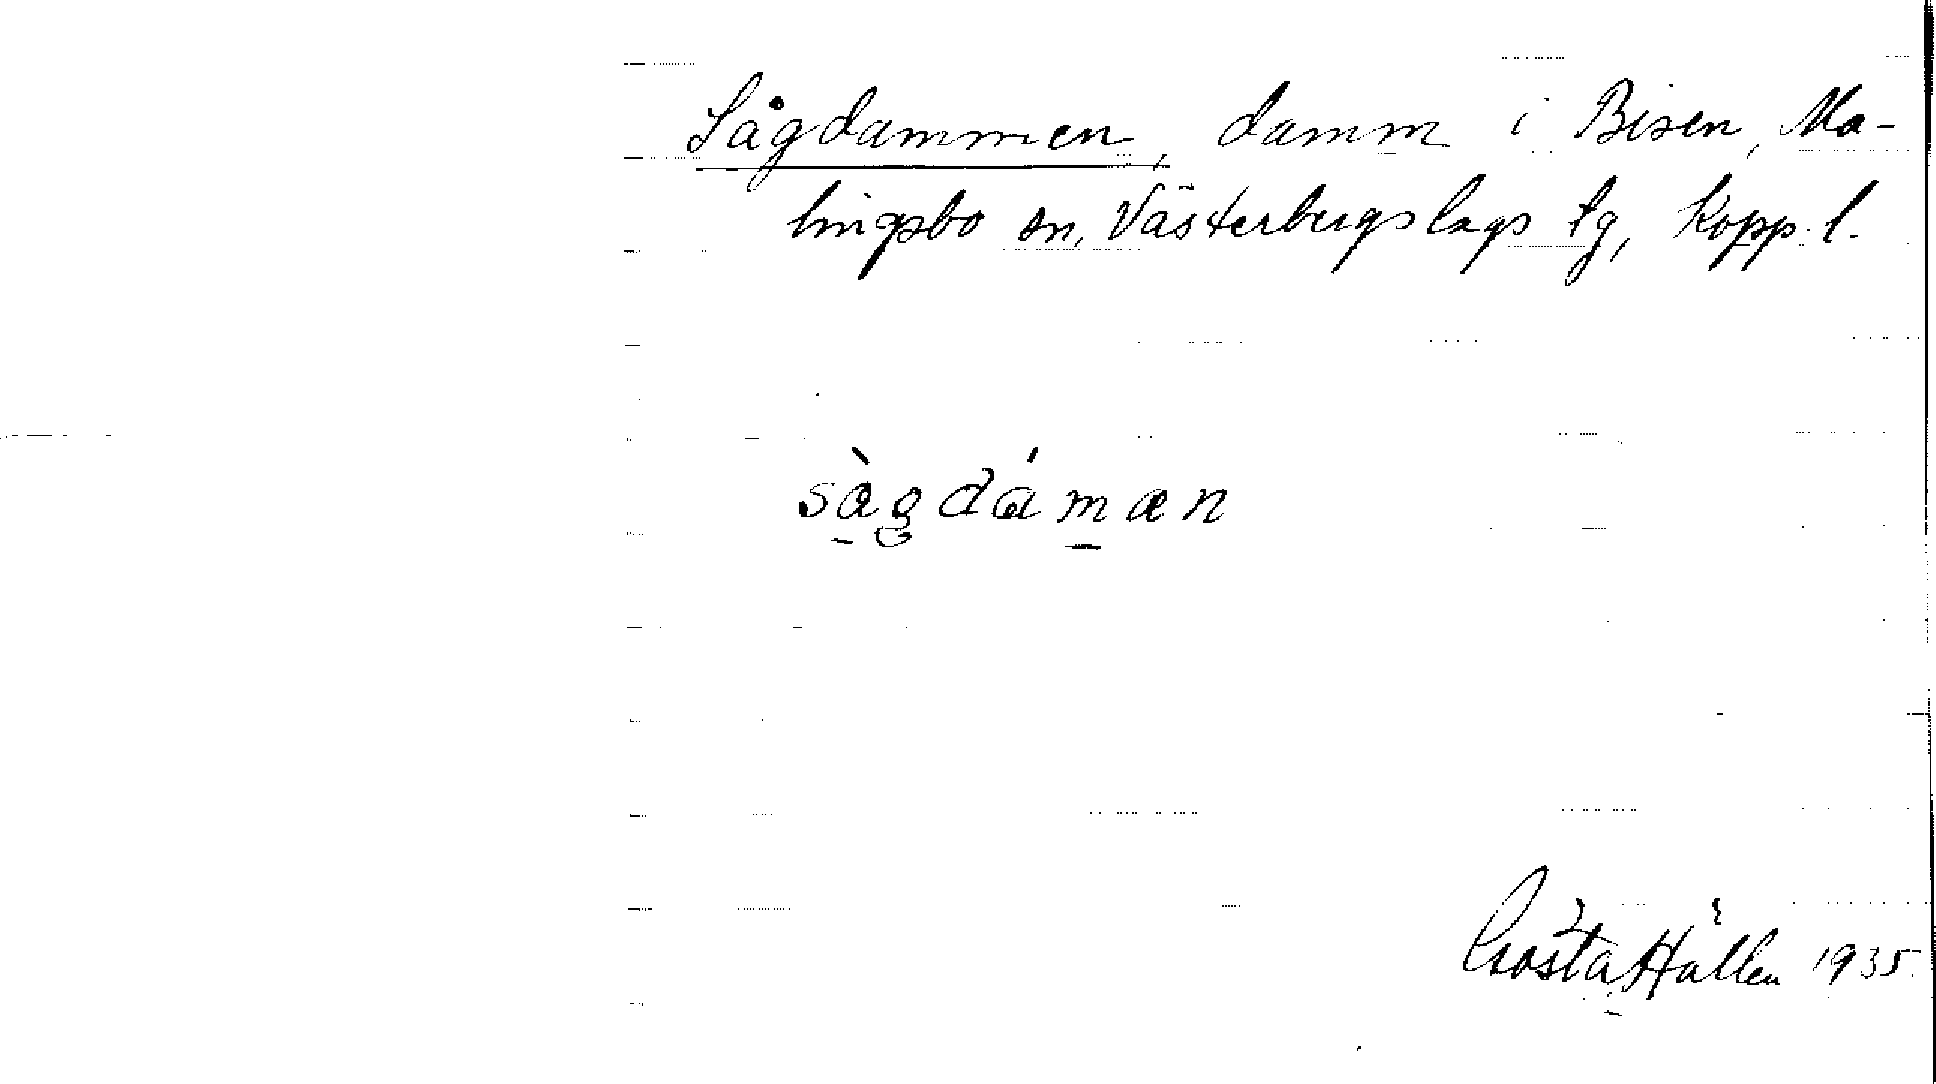 Sågdammen, damm i Bisen, Ma-
lingsbo sn, Västerbergslags tg, Kopp. l.
sàgdámæn
Gösta Hällen 1935.